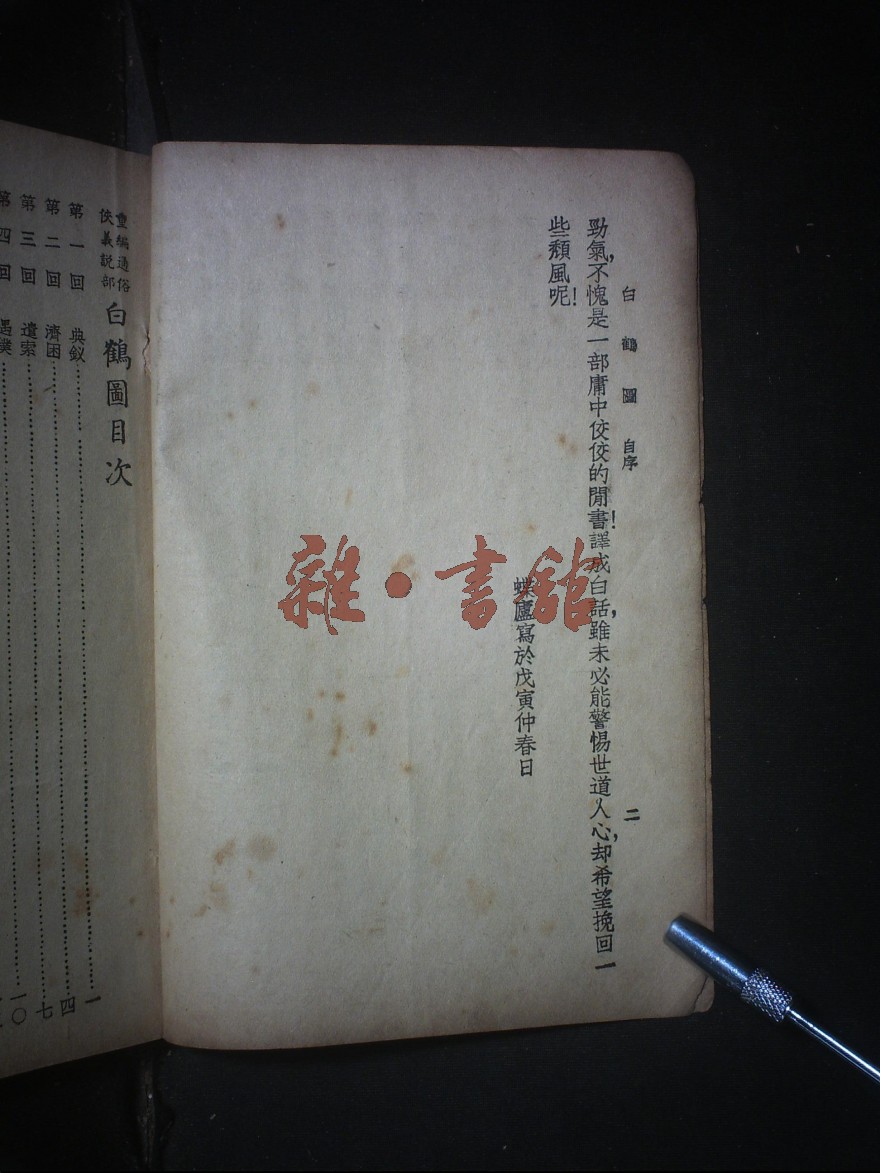 白鶴圖 自序 二
勁氣,不愧是一部庸中佼佼的閒書!譯成白話,雖未必能警惕世道人心,却希望挽回一
些頽風呢!
蝶廬寫於戊寅仲春日
重編通俗
俠義説部
白鶴圖目次
第一回 典釵……一
第二回 濟困……四
第三回 遣索……七
第四回 遇僕……一〇
雜·書館